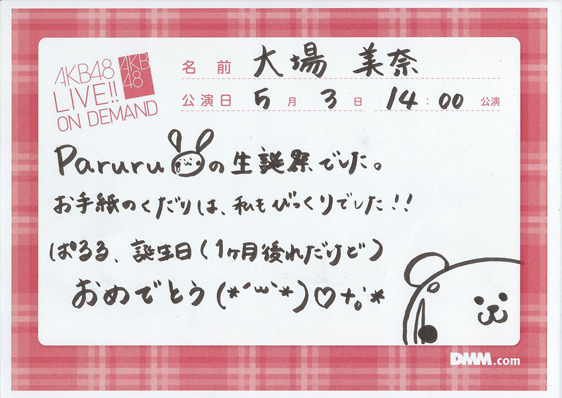 AKB48
LIVE!!
ON DEMAND
AKB
48
名前 大場 美奈
公演日 5月3日 14:00 公演
Paruru の生誕祭でした。
お手紙のくだりは、私もびっくりでした!!
ぱるる、誕生日(1ヶ月後れだけど)
おめでとう(*´ω`*)♡+。*
DMM.com